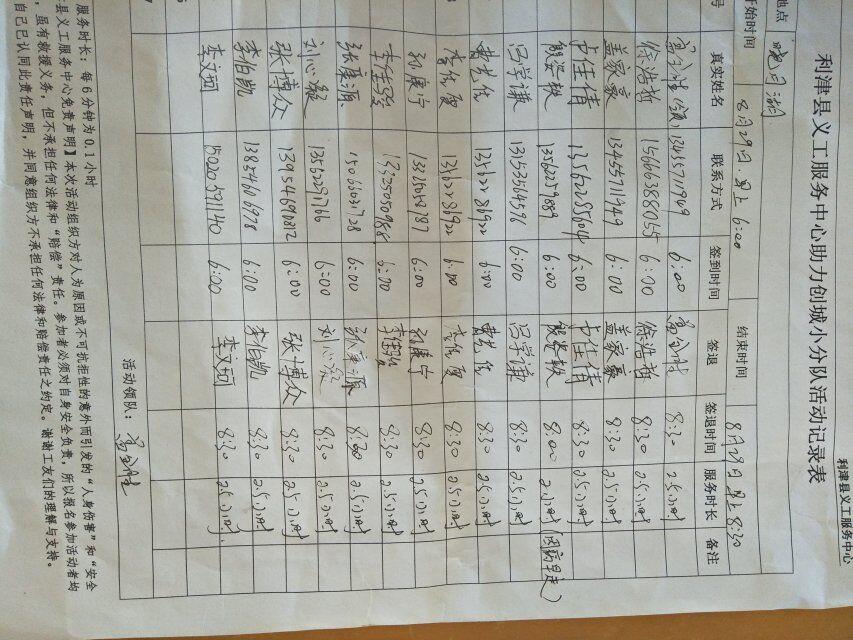 利津县义工服务中心
利津县义工服务中心助力创城小分队活动记录表
地点 晚月湖
开始时间 8月29日.早上6:00 结束时间 8月29日早上8:30
号 真实姓名 联系方式 签到时间 签退 签退时间 服务时长 备注
13455711949 6:00 8:30 2.5小时
徐浩哲 15666388055 6:00 徐浩哲 8:30 2.5小时
盖家豪 13455711949 6:00 盖家豪 8:30 2.5小时
卢佳倩 13562285604 6:00 卢佳倩 8:30 2.5小时
殷姿轶 13562259889 6:00 殷姿轶 8:00 2小时 (因病早走)
吕学谦 13153564596 6:00 吕学谦 8:30 2.5小时
6:00 8:30 2.5小时
6:00 8:30 2.5小时
孙康宁 6:00 孙康宁 8:30 2.5小时
李佳骏 6:00 李佳骏 8:30 2.5小时
6:00 8:30 2.5小时
刘心凝 13562291766 6:00 刘心凝 8:30 2.5小时
张博众 13954690812 6:00 张博众 8:30 2.5小时
李柏凯 6:00 李柏凯 8:30 2.5小时
李文珂 15020591140 6:00 李文珂 8:30 2.5小时
活动领队：
服务时长：每6分钟为0.1小时
县义工服务中心免责声明】本次活动组织方对人为原因或不可抗拒性的意外而引发的“人身伤害”和“安全
，虽有救援义务，但不承担任何法律和“赔偿”责任。参加者必须对自身安全负责，所以报名参加活动者均
自己已认同此责任声明，并同意组织方不承担任何法律和赔偿责任之约定。谢谢工友们的理解与支持。